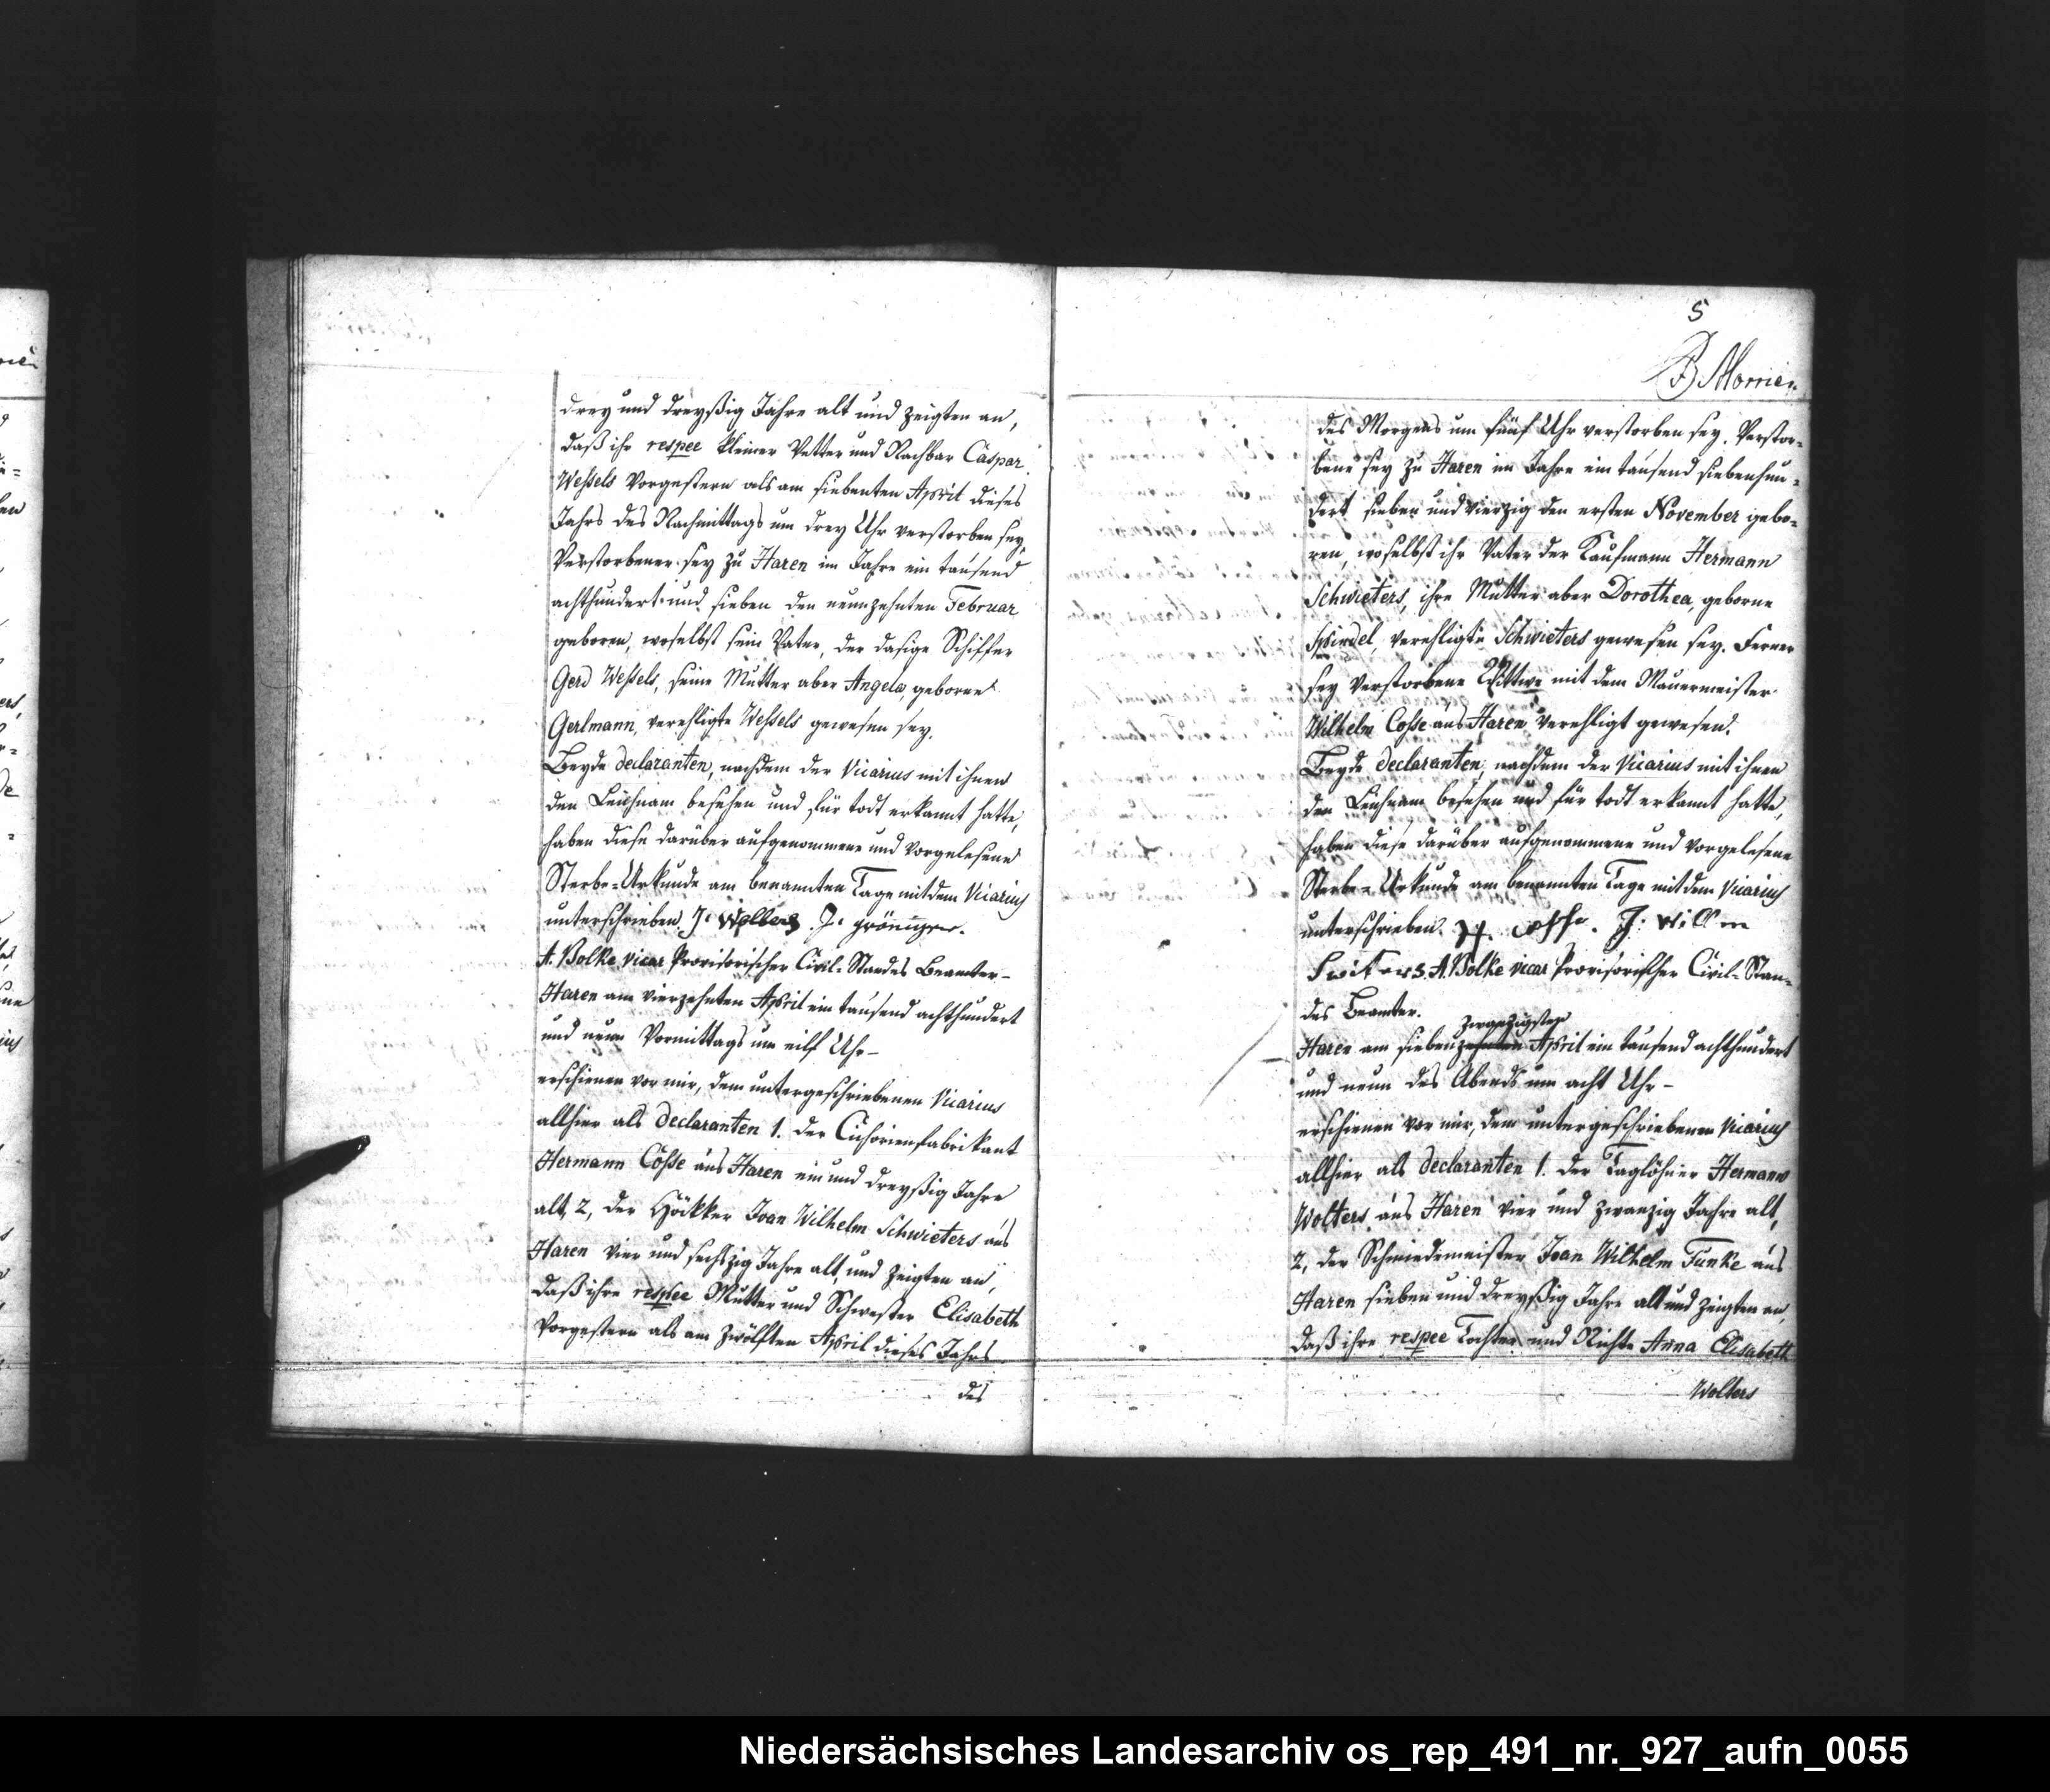 drey und dreyßig Jahre alt und zeigten an,
daß ihr respee kleiner Vetter und Nachbar Caspar
Weßels vorgestern als am siebenten April dieses
Jahrs des Nachmittags um drey Uhr verstorben sey
Verstorbener sey zu Haren im Jahre ein tausend
achthundert und sieben den neunzehnten Februar
geboren, woselbst sein Vater, der dasige Schiffer
Gerd Weßels, seine Mutter aber Angela, geborene
Gerlmann, verehligte Weßels gewesen sey.
Beyde declaranten, nachdem der Vicarius mit ihnen
den Leichnam besehen und für todt erkannt hatte,
haben diese darüber aufgenommene und vorgelesene
Sterbe-Urkunde am benannten Tage mit dem Vicarius
unterschrieben. J: Wolbers. J:
A. Bolke vicar Provisorischer Civil-Standes Beamter-
Haren am vierzehnten April ein tausend achthundert
und neun Vormittags um eilf Uhr-
erschienen vor mir, dem untergeschriebenen Vicarius
allhier als declaranten 1. der Cichorienfabrikant
Hermann Coße aus Haren ein und dreyßig Jahre
alt, 2, der Höckker Joan Wilhelm Schwieters aus
Haren vier und sechszig Jahre alt, und zeigten an,
daß ihre respee Mutter und Schwester Elisabeth
vorgestern als am zwölften April dieses Jahrs
des
5
B Morrien
des Morgens um fünf Uhr verstorben sey. Verstor=
bene sey zu Haren im Jahre ein tausend siebenhun=
dert sieben und vierzig den ersten November gebo=
ren, woselbst ihr Vater der Kaufmann Hermann
Schwieters, ihre Mutter aber Dorothea, geborne
verehligte Schwieters gewesen sey. Ferner
sey Verstorbene Wittwe mit dem Mauermeister
Wilhelm Coße aus Haren verehligt gewesen.
Beyde declaranten, nachdem der Vicarius mit ihnen
den Leichnam besehen und für todt erkannt hatte,
haben diese darüber aufgenommene und vorgelesene
Sterbe-Urkunde am benannten Tage mit dem Vicarius
unterschrieben. H. Coße. J: Willm
Switers. A. Bolke vicar Provisorischer Civil-Stan=
des Beamter.
zwanzigsten
Haren am siebenzehnten April ein tausend achthundert
und neun des Abends um acht Uhr-
erschienen vor mir, dem untergeschriebenen Vicarius
allhier als declaranten 1. der Taglöhner Hermann
Wolters aus Haren vier und zwanzig Jahre alt,
2, der Schmiedemeister Joan Wilhelm Funke aus
Haren sieben und dreyßig Jahre alt und zeigten an,
daß ihre respee Tochter und Nichte Anna Elisabeth
Wolters
Niedersächsisches Landesarchiv os_rep_491_nr._927_aufn_0055